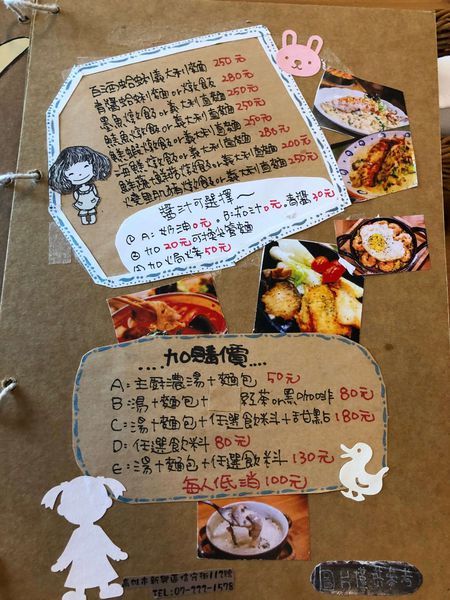 白酒蛤蜊義大利麵 250元
青醬蛤蜊麵or燉飯 280元
墨魚燉飯or義大利直麵 250元
鮭魚燉飯or義大利直麵 250元
鮮蝦燉飯or義大利直麵 250元
海鮮燉飯or義大利直麵 280元
鮮蔬鮮菇燉飯or義大利直麵 200元
燉飯or義大利直麵 250元
醬汁可選擇~
① A: 奶油0元. B: 茄汁0元. 青醬30元
② 加20元可換
③ 加焗烤50元
....加購價....
A: 主廚濃湯+麵包 50元
B: 湯+麵包+ 紅茶or黑咖啡 80元
C: 湯+麵包+任選飲料+甜點 180元
D: 任選飲料 80元
E: 湯+麵包+任選飲料 130元
每人低消100元
高雄市新興區信守街117號
TEL:07-222-1578
圖片僅供參考